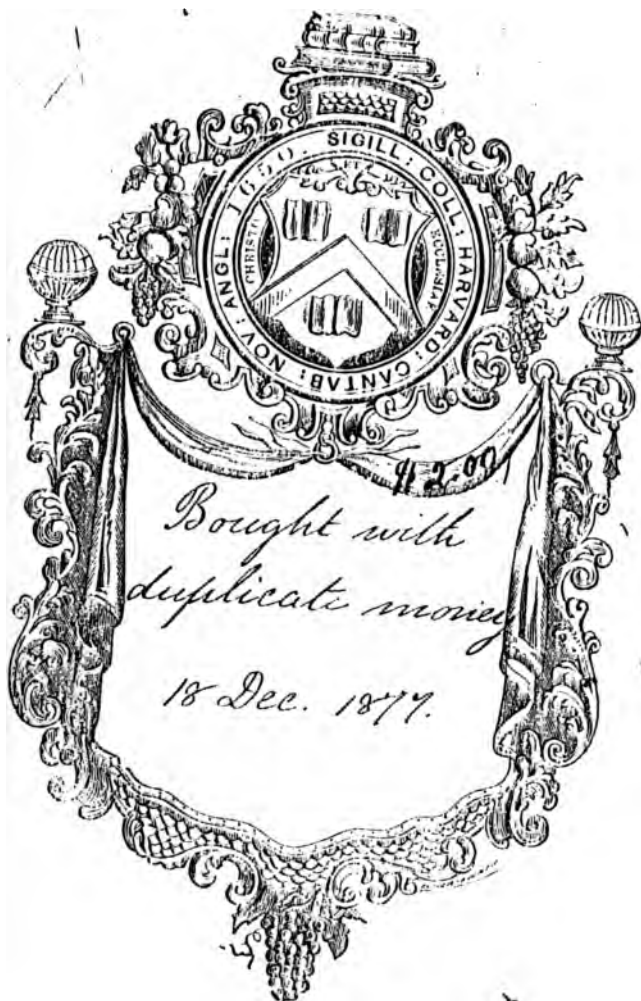 SIGILL: COLL: HARVARD: CANTAB: NOV: ANGL: 1650.
ET
CHRISTO
ECCLESIAE
$2.00,
Bought with
duplicate money
18 Dec. 1877.